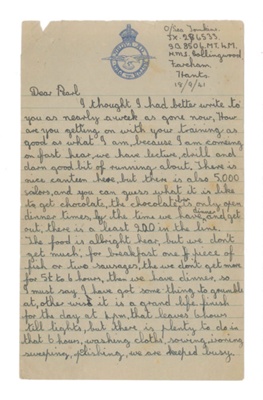 O/Tel Tonkins.
FX.
S.Q. 350 6. MT. 4M.
H.M.S. Collingwood
Fareham
Hants.
18/9/41
Dear Pearl
I thought I had better write to
you as nearly a week as gone now, How
are you getting on with your training as
good as what I am, because I am comeing
on fast hear, we have lecture, drill and
darn good bit of running about. There is
nice canteen hear but there is also 5,000
sailors, and you can guess what it is like
to get chocolate, the chocolate bar is only open
dinner times, by the time we have dinner and get
out, there is a least 200 in the line.
The food is allright hear, but we don't
get much. for breakfast one piece of
fish or two sausages, the we don't get more
for 5½ to 6 hours, then we have dinner, so
I must say I have got some thing to grumble
at, other wise it is a grand life, finish
for the day at 4 pm, that leaves 6 hours
till lights, but there is plenty to do in
that 6 hours, washing cloths, sowing, ironing
sweeping, polishing, we are keeped busy.